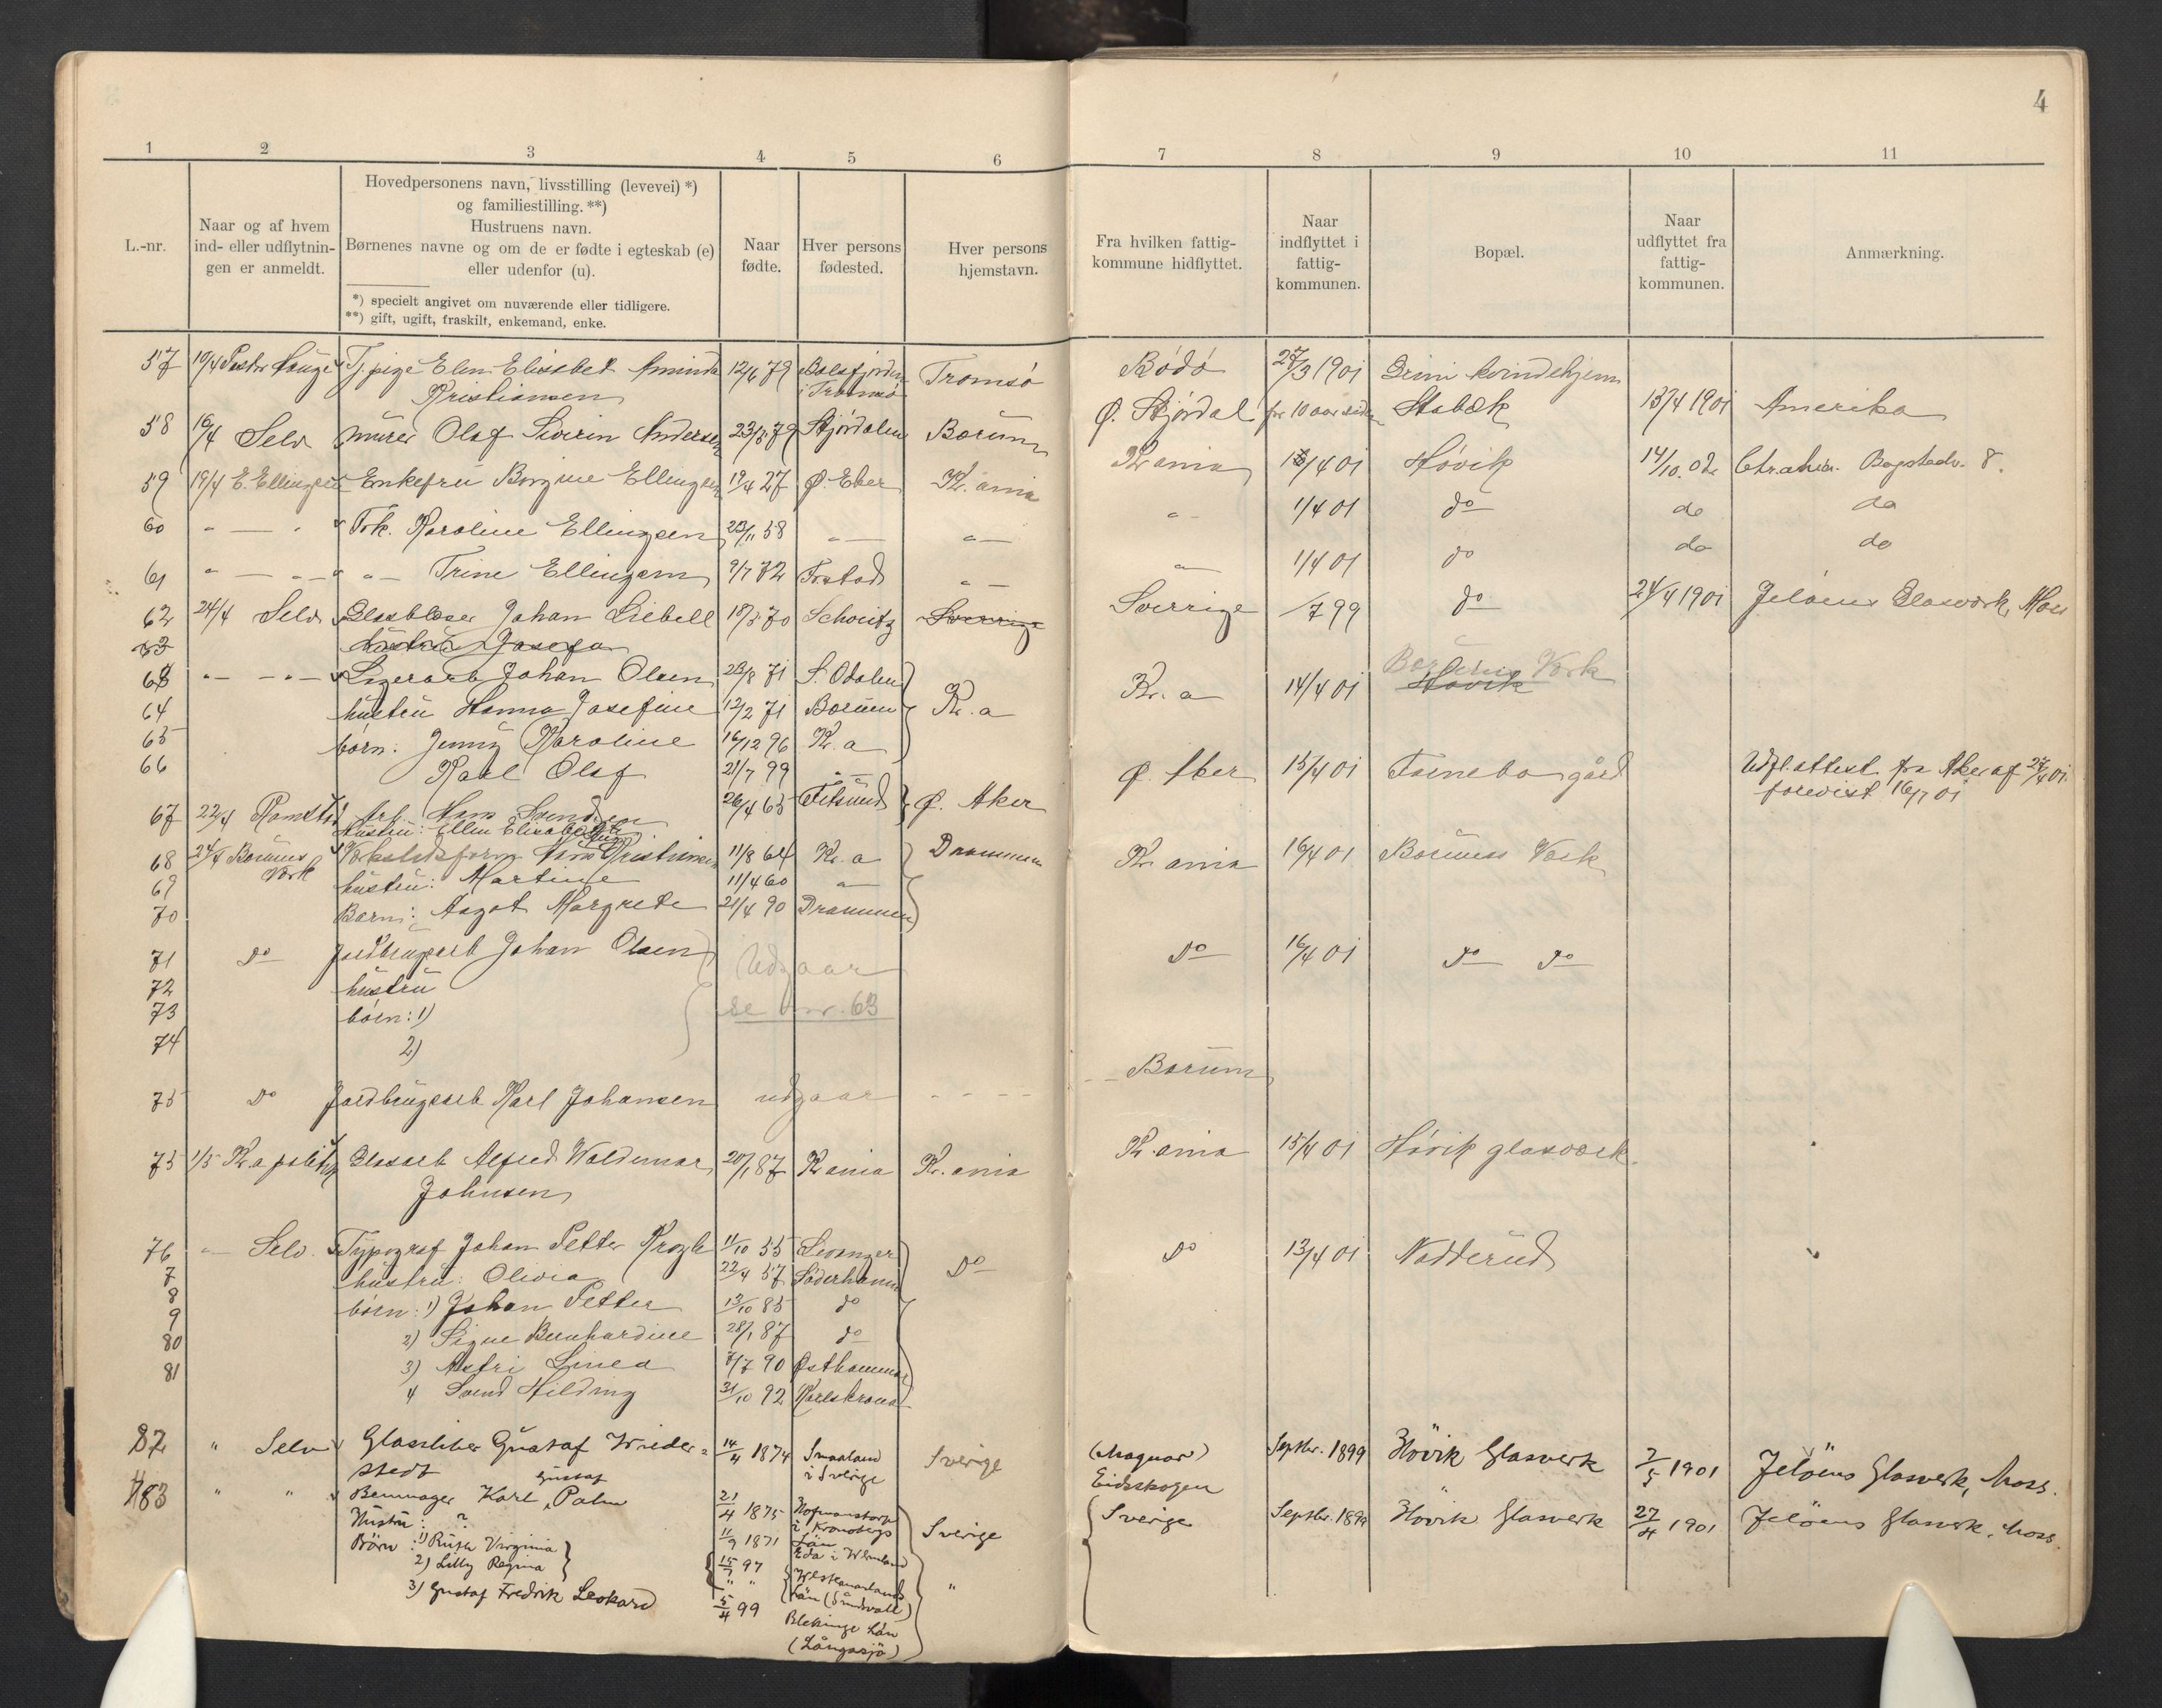 4
1 2 3 4 5 6 7 8 9 10 11
L.-nr.
Naar og af hvem
ind- eller udflytnin-
gen er anmeldt.
Hovedpersonens navn, livsstilling (levevei) *)
og familiestilling. **)
Hustruens navn.
Børnenes navne og om de er fødte i egteskab (e)
eller udenfor (u).
*) specielt angivet om nuværende eller tidligere.
**) gift, ugift, fraskilt, enkemand, enke.
Naar
fødte.
Hver persons
fødested.
Hver persons
hjemstavn.
Fra hvilken fattig-
kommune hidflyttet.
Naar
indflyttet i
fattig-
kommunen.
Bopæl.
Naar
udflyttet fra
fattig-
kommunen.
Anmærkning.
57 19/4 Pastor Hauge Tj. pige Elen Elisabet Aminda 12/6 79 Balsfjorden Tromsö Bödö 27/3 1901 Grini kvindehjem
Kristiansen i Tromsö
58 16/4 Selv murer Olaf Siverin Andersen 23/5 79 Stjördalen Bærum Ø. Stjördal for 10 aar siden Stabæk 13/4 1901 Amerika
59 19/4 E. Ellingsen Enkefru Borgine Ellingsen 19/4 27 Ø. Eker Kr. ania Kr ania 1/4 01 Hövik 14/10. 02 Chrania. Bogstadv. 8.
60 " — " Frk. Karoline Ellingsen 23/11 58 " — " — " 1/4 01 do do do
61 " — " — " — Trine Ellingsen 9/7 72 " — " — 1/4 01 do do do
62 24/4 Selv Glasblæser Johan Liebell 18/5 70 Schweitz Sverrige Sverrige /7 99 do 24/4 1901 Jelöens Glasværk, Moss
63 hustru Josefa
63 " — " — Johan Olsen 23/8 71 S. Odalen Kr. a Kr. a 14/4 01 Hövik Bærums Værk
64 hustru Hanna Josefine 12/2 71 Bærum
65 børn: Jenny Karoline 16/12 96 Kr. a
66 Karl Olaf 21/7 99 " —
67 22/4 Ramstad Arb. Hans 26/4 65 Fetsund Ø. Aker Ø. Aker 15/4 01 Fornebo gård Udfl. attest fra Aker af 27/4 01.
Hustru: Ellen Elisabeth forevist 16/7 01
68 24/4 Bærums Værk Værkstedsform. Hans Kristiansen 11/8 64 Kr. a Drammen Kr. ania 16/4 01 Bærums Værk
69 hustru: Martine 11/4 60 "
70 Barn: Aagot Margrete 21/4 90 Drammen
71 do Jordbrugsarb Johan Olsen Udgaar do 16/4 01 do do
72 hustru se l.nr. 63
73 børn: 1)
74 2)
75 do Jordbrugsarb Karl Johansen udgaar - - - - Bærum
75 1/5 Kr. a politi Glasarb Alfred Waldemar 20/1 87 Kr ania Kr. ania Kr. ania 15/4 01 Hövik glasværk
Johnsen
76 " — Selv. Typograf Johan Petter Krogh 11/10 55 Levanger do do 13/4 01 Nadderud
7 hustru: Olivia 22/4 57 Söderhamn
8 børn: 1) Johan Petter 13/10 85 do
9 2) Signe Bernhardine 28/1 87 do
80 3) Astri Linea 7/7 90 Østhammar
81 4 Svend Hilding 31/10 92 Karlskrona
82 " Selv Glassliber Gustaf Wieder= 14/4 1874 Smaaland Sverige (Magnor) Septbr. 1899 Hövik Glasverk 2/5 1901 Jelöens Glasverk, Moss.
stedt i Sverige Eidskogen
83 " " Karl Gustaf Palm 21/4 1875 Hofmanstorp Sverige Sverige Septbr. 1899 Hövik Glasverk 27/4 1901 Jelöens Glasverk, Moss.
Hustru: ? 11/9 1871 i Kronobergs Län
Eda i Wermland
Börn: 1) Ruth Virginia 15/7 97
2) Lilly Regina " " (Sundsvall) "
3) Gustaf Fredrik 5/4 99 Blekinge Län
(Långasjö)